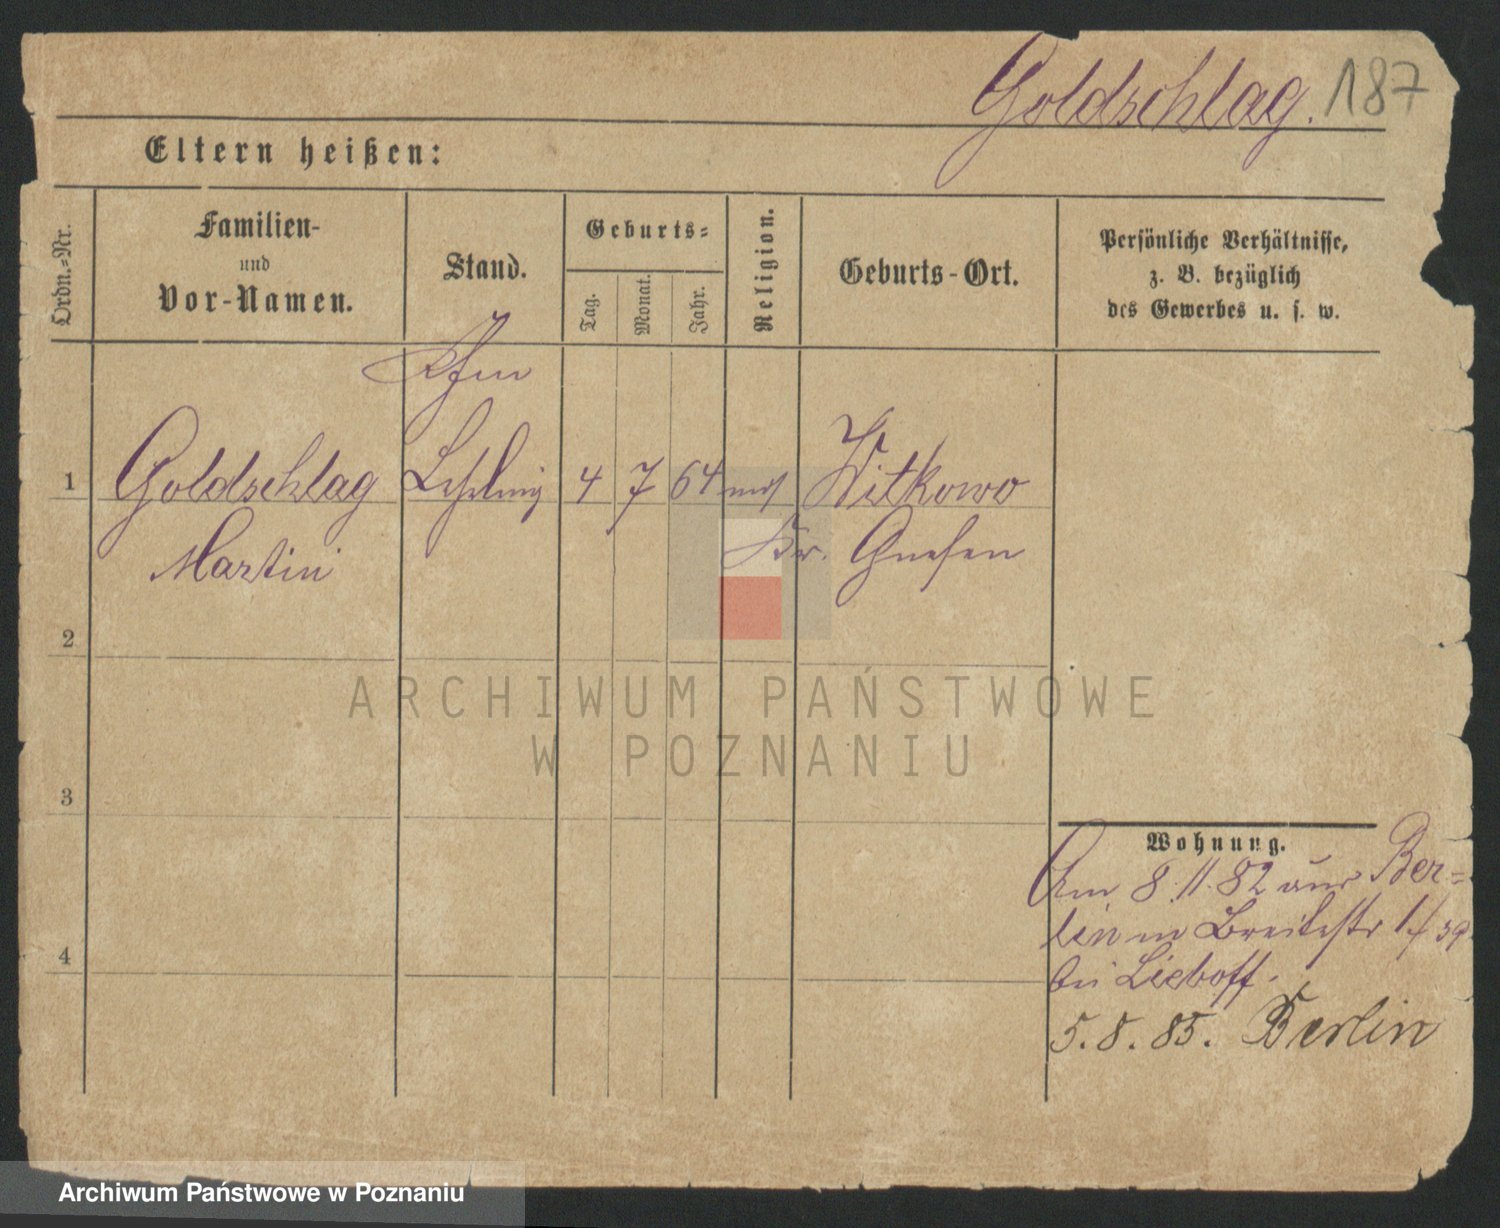 Goldschlag. 187
Eltern heißen:
Ordn.-Nr.
Familien-
und
Vor-Namen.
Stand.
Geburts-
Tag.
Monat.
Jahr.
Religion.
Geburts-Ort.
Persönliche Verhältnisse,
z. B. bezüglich
des Gewerbes u. s. w.
Kfm
1 Goldschlag Lehrling 4 7 64 mos Witkowo
Martin Kr. Gnesen
2
ARCHIWUM PAŃSTWOWE
W POZNANIU
3
Wohnung.
Am 8.11.82 aus Ber=
lin in Breitestr 1/39
bei Lieboff.
4
5.8.85. Berlin
Archiwum Państwowe w Poznaniu